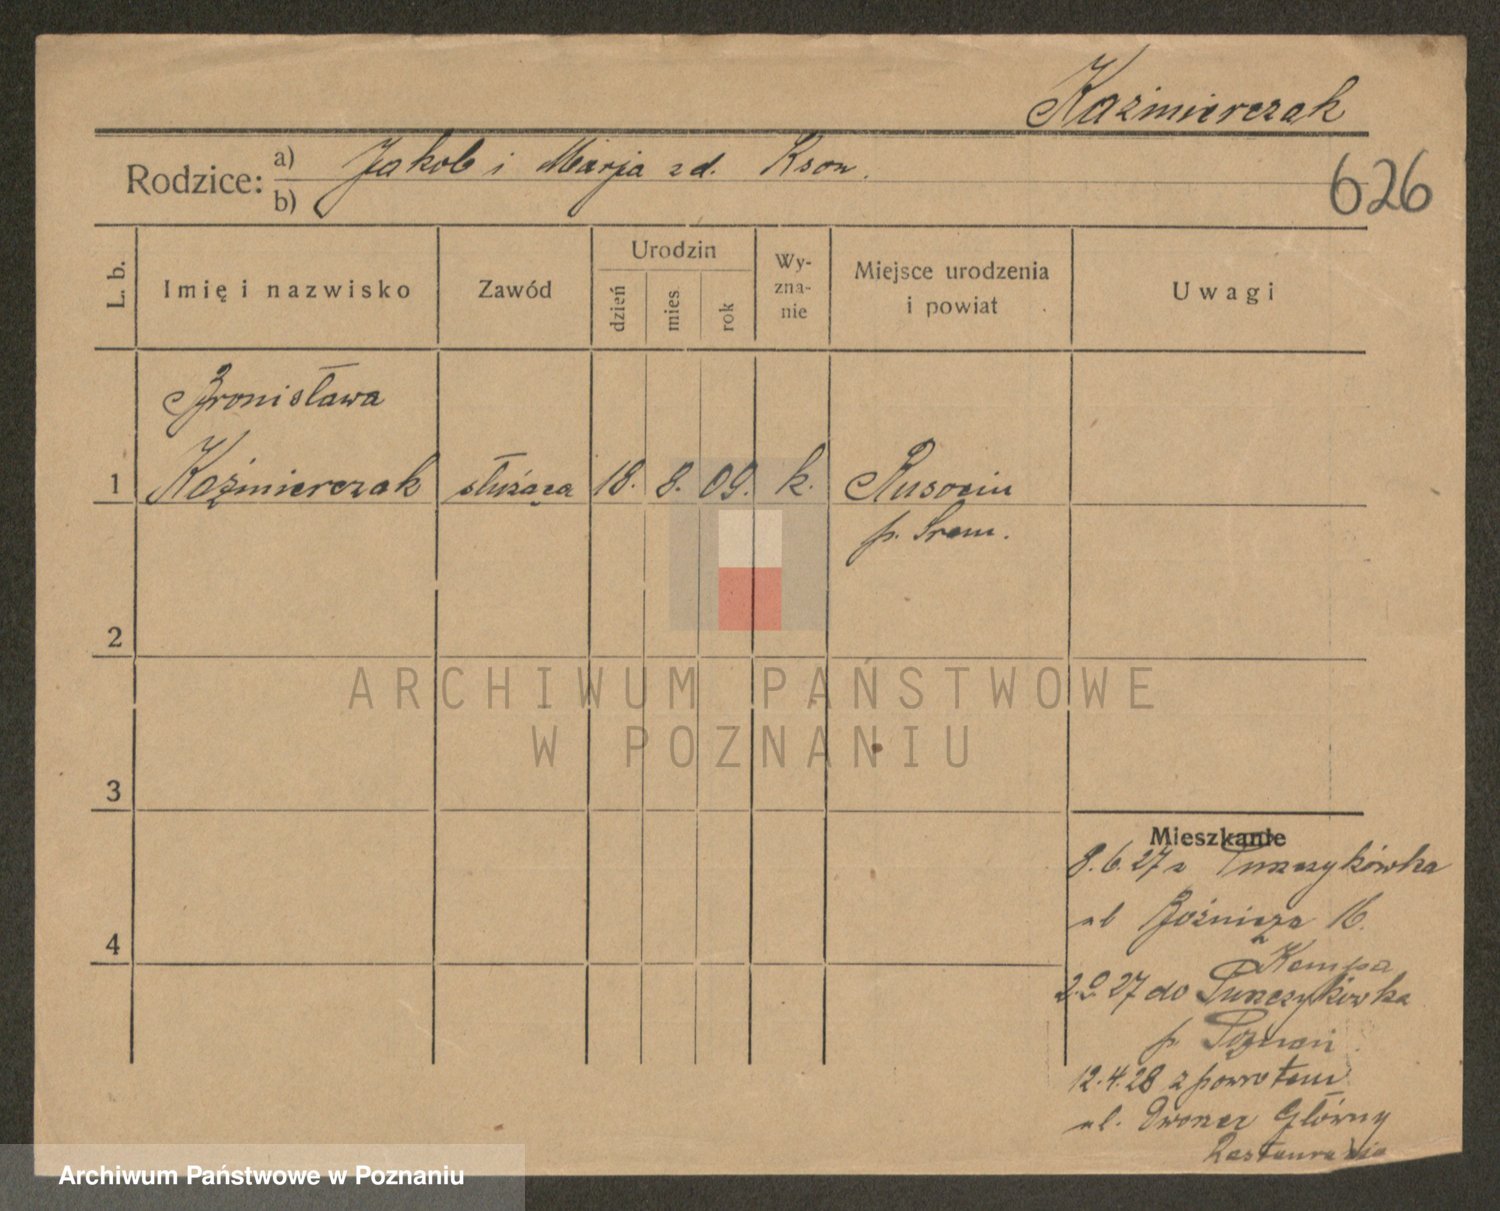 Kaźmierczak
Rodzice: a) Jakob i Marja zd. Kson.
b)
626
L. b. Imię i nazwisko Zawód Urodzin dzień mies rok Wy-zna-nie Miejsce urodzenia i powiat Uwagi
Bronisława
1 Kaźmierczak służąca 18. 8. 09. k. Rusocin
p. Śrem.
2
ARCHIWUM PAŃSTWOWE
W POZNANIU
3
Mieszkanie
8.6.27 z
ul 16.
Kempa
27 do
p. Poznań
12.4.28 z powrotem
ul. Dworzec Główny
Restauracja
4
Archiwum Państwowe w Poznaniu